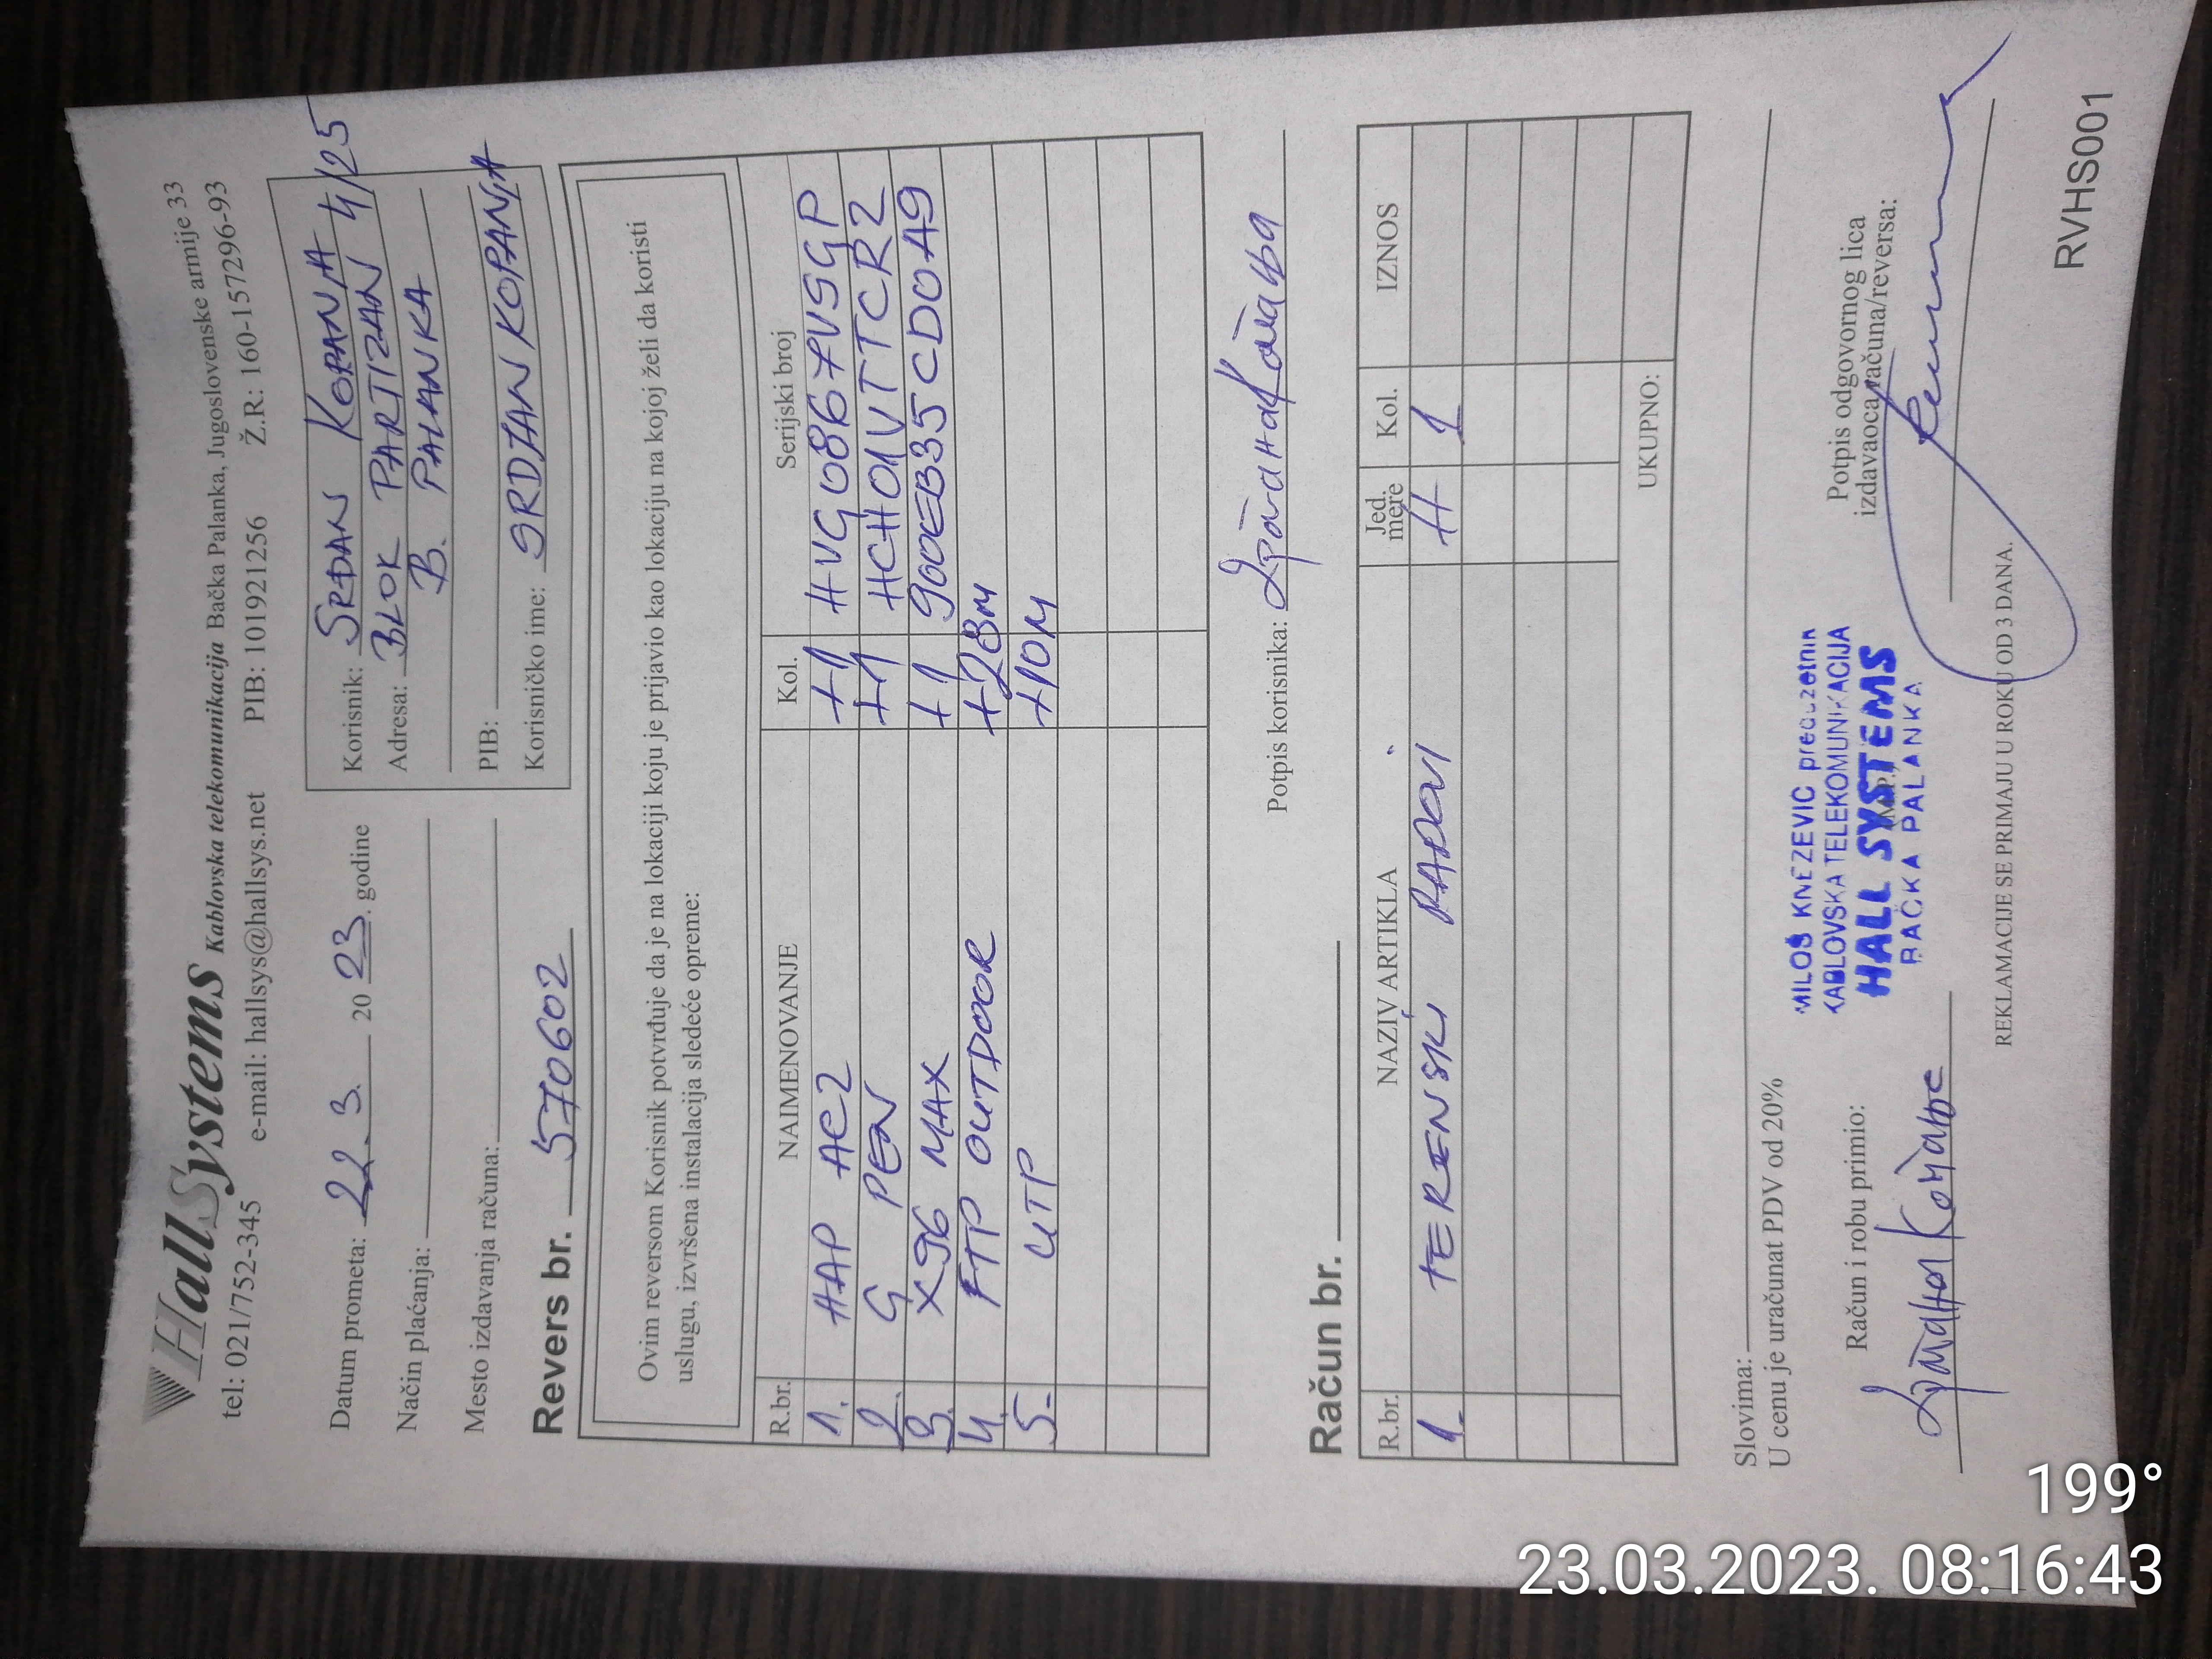 HallSystems Kablovska telekomunikacija Bačka Palanka, Jugoslovenske armije 33
tel: 021/752-345 e-mail: hallsys@hallsys.net PIB: 101921256 Ž.R: 160-157296-93
Datum prometa: 22.3. 2023. godine
Način plaćanja:
Mesto izdavanja računa:
Korisnik: SRĐAN KOPANJA
Adresa: BLOK PARTIZAN 4/25
B. PALANKA
PIB:
Korisničko ime: SRDJANKOPANJA
Revers br. 570602
Ovim reversom Korisnik potvrđuje da je na lokaciji koju je prijavio kao lokaciju na kojoj želi da koristi
uslugu, izvršena instalacija sledeće opreme:
R.br. NAIMENOVANJE Kol. Serijski broj
1. HAP AC2 +1 HVG0867VSGP
2. G PEN +1 HCH01VTTCR2
3. X96 MAX +1 900EB35CD0A9
4. FTP OUTDOOR +28M
5. UTP +10M
Potpis korisnika: Срђан Копања
Račun br.
R.br. NAZIV ARTIKLA Jed. mere Kol. IZNOS
1. TERENSKI RADOVI H 1
UKUPNO:
Slovima:
U cenu je uračunat PDV od 20%
Račun i robu primio:
Срђан Копања
MILOŠ KNEZEVIC preduzetnik
KABLOVSKA TELEKOMUNIKACIJA
HALL SYSTEMS
BAČKA PALANKA
Potpis odgovornog lica
izdavaoca računa/reversa:
REKLAMACIJE SE PRIMAJU U ROKU OD 3 DANA.
RVHS001
199°
23.03.2023. 08:16:43